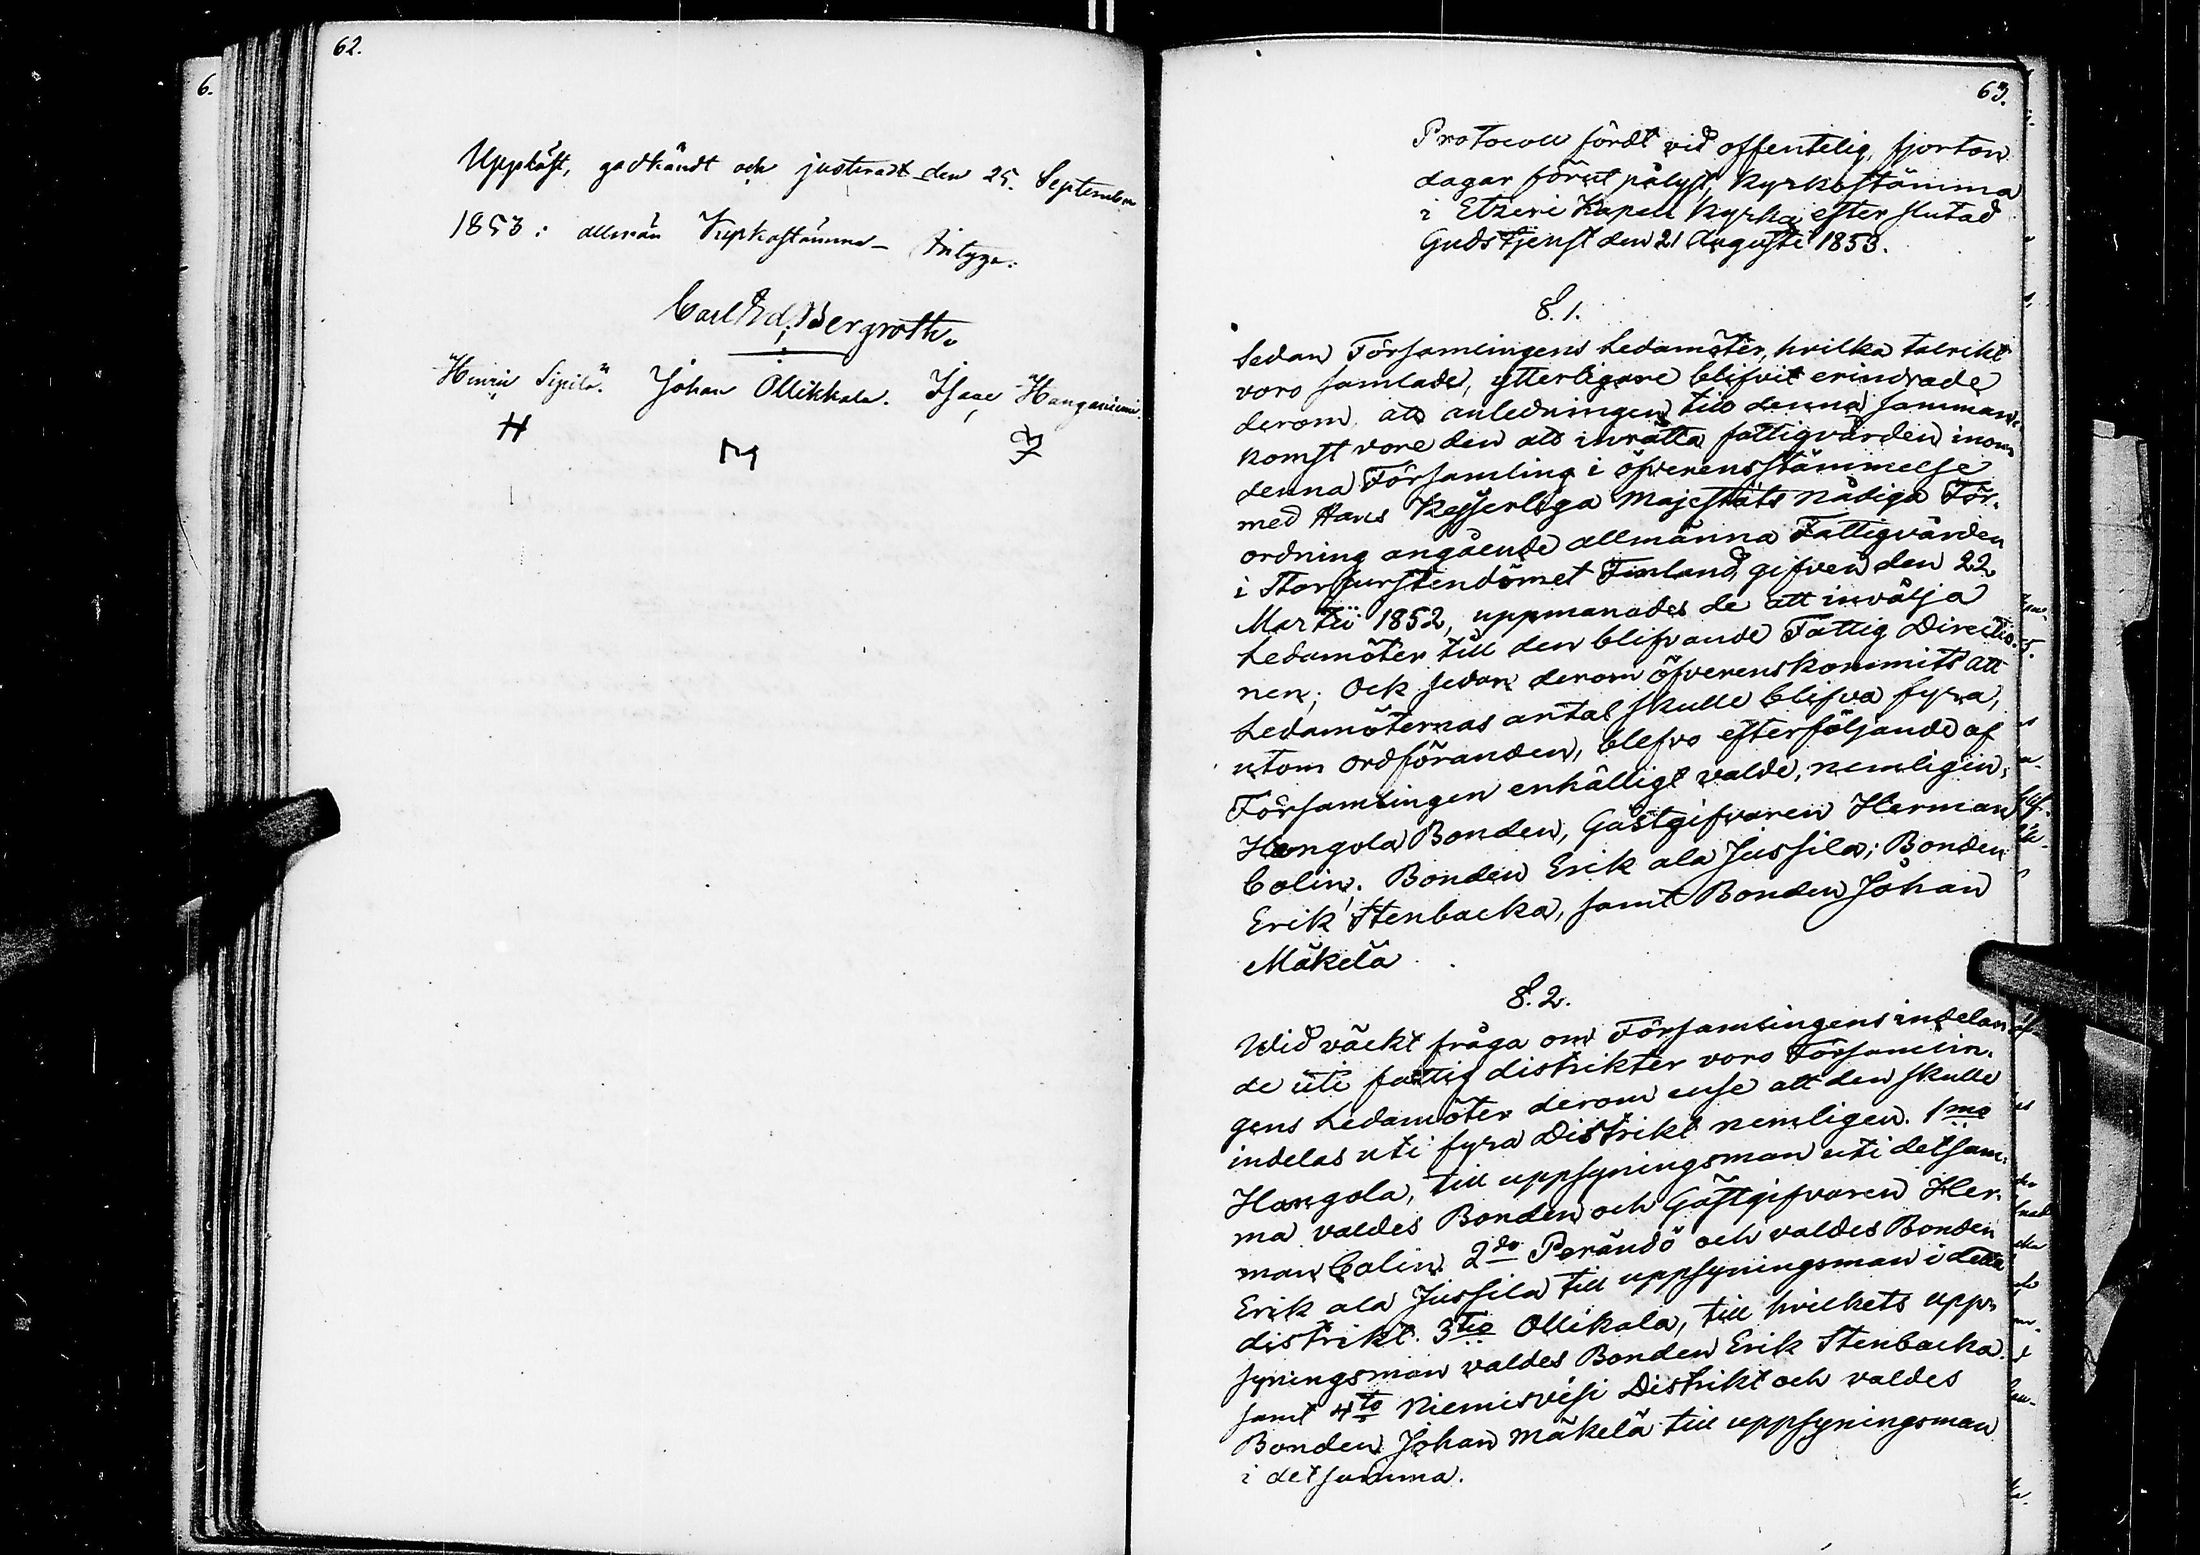 62.
6.
Uppläst, godkändt och justeradt den 25. September
1853 : allmän Kyrkostämma – Intyga.
Carl Ed. Bergroth.
Henric Sipilä. Johan Ollikkala. Isaac Hanganiemi.
63.
Protocoll fördt vid offentelig, fjorton
dagar förut pålyst, Kyrkostämma
i Etzeri Kapell Kyrka efter slutad
Gudstjenst den 21 Augusti 1853.
§. 1.
Sedan Församlingens Ledamöter, hvilka talrikt
voro samlade, ytterligare blifvit erindrade
derom att anledningen till denna samman-
komst vore den att inrätta fattigvården inom
denna Församling i öfverensstämmelse
med Hans Kejserliga Majestäts Nådiga För-
ordning angående allmänna Fattigvården
i Storfurstendömet Finland, gifven den 22
Martii 1852, uppmanades de att invälja
Ledamöter till den blifvande Fattig Directio-
nen; Ock sedan derom öfverenskommits att
Ledamöternas antal skulle blifva fyra,
utom ordföranden, blefvo efterföljande af
Församlingen enhälligt valde, nemligin;
Hangola Bonden, Gästgifvaren Herman
Colin; Bonden Erik ala Jussila; Bonden
Erik Stenbacka, samt Bonden Johan
Mäkelä
§. 2.
Wid väckt fråga om Församlingens indelan-
de uti fattig distrikter voro Församlin-
gens Ledamöter derom ense att den skulle
indelas uti fyra Distrikt nemligen. 1mo
Hangola, till uppsyningsman uti detsam-
ma valdes Bonden och Gästgifvaren Her-
man Colin. 2do Perändö och valdes Bonden
Erik ala Jussila till uppsyningsman i detta
distrikt. 3tio Ollikala, till hvilkets upp-
syningsman valdes Bonden Erik Stenbacka.
samt 4to Niemisvesi Distrikt och valdes
Bonden Johan Mäkelä till uppsyningsman
i detsamma.